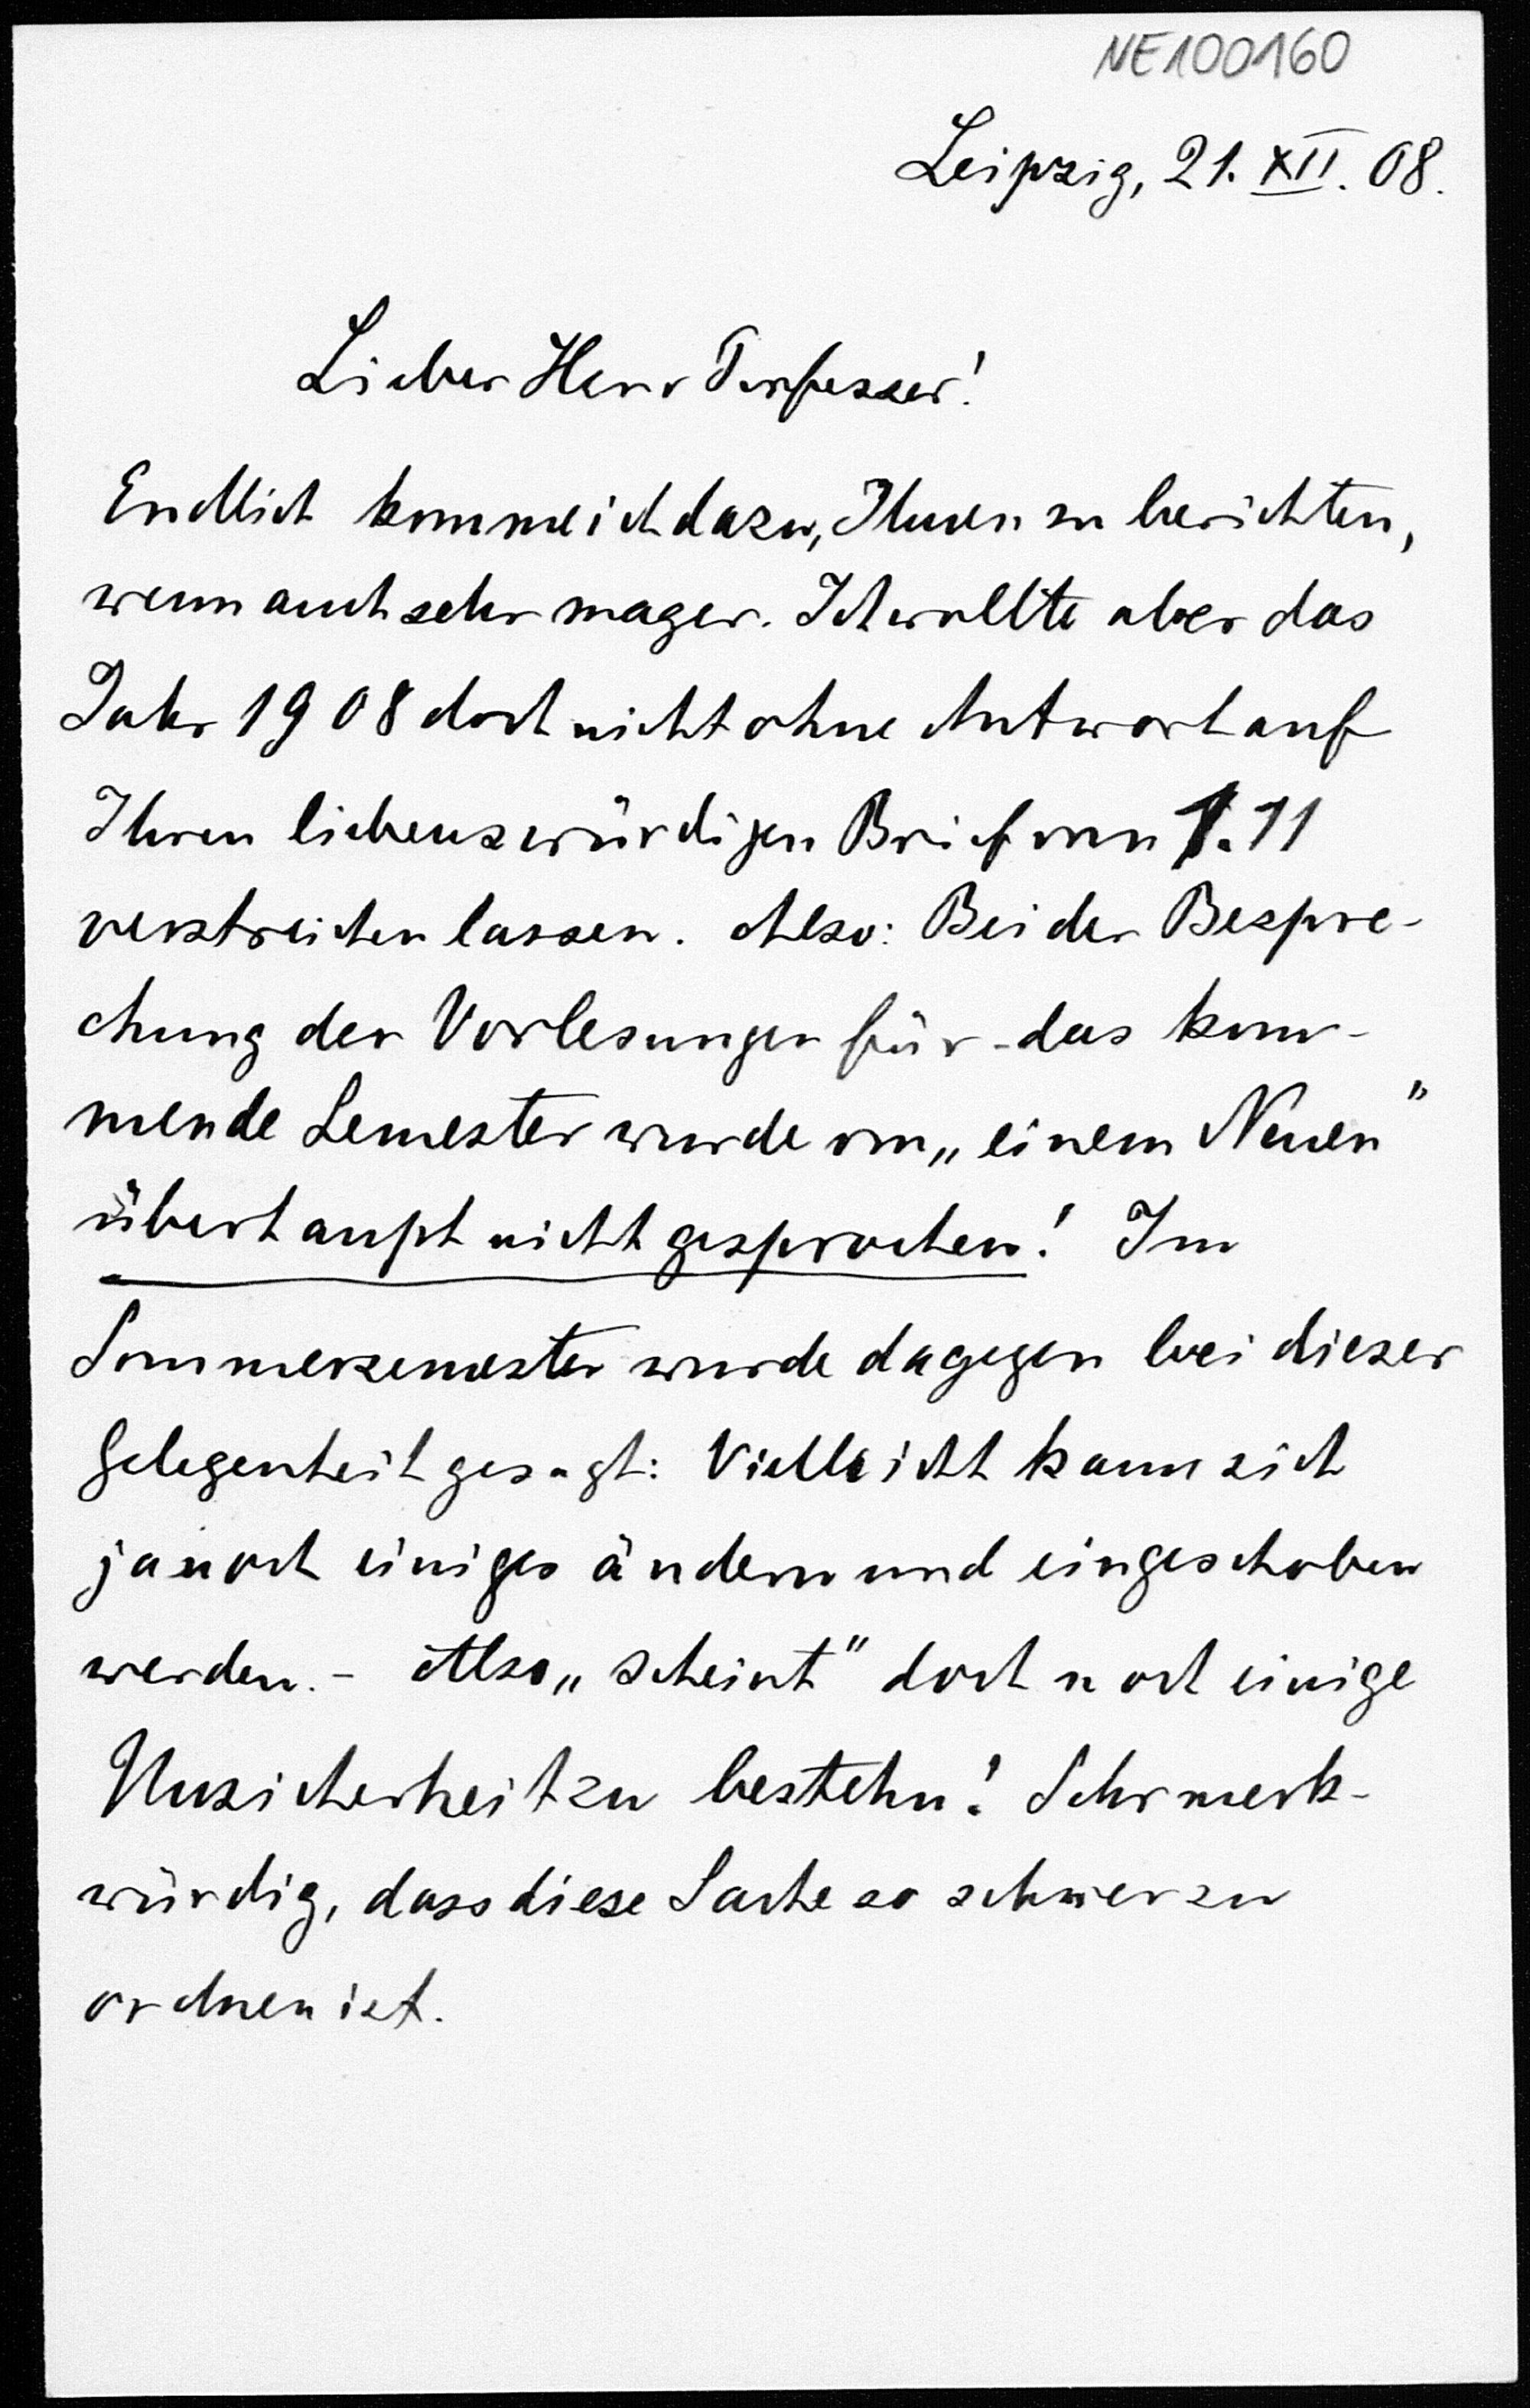 NE100160
Leipzig, 21. XII. 08.
Lieber Herr Professor!
Endlich komme ich dazu, Ihnen zu berichten,
wenn auch sehr mager. Ich wollte aber das
Jahr 1908 doch nicht ohne Antwort auf
Ihren liebenswürdigen Brief vom 1. 11
verstreichen lassen. Also: Bei der Bespre-
chung der Vorlesungen für das kom-
mende Semester wurde von „einem Neuen"
überhaupt nicht gesprochen! Im
Sommersemester wurde dagegen bei dieser
Gelegenheit gesagt: Vielleicht kann sich
ja noch einiges ändern und eingeschoben
werden. - Also „scheint" doch noch einige
Unsicherheit zu bestehn! Sehr merk-
würdig, dass diese Sache so schwer zu
ordnen ist.